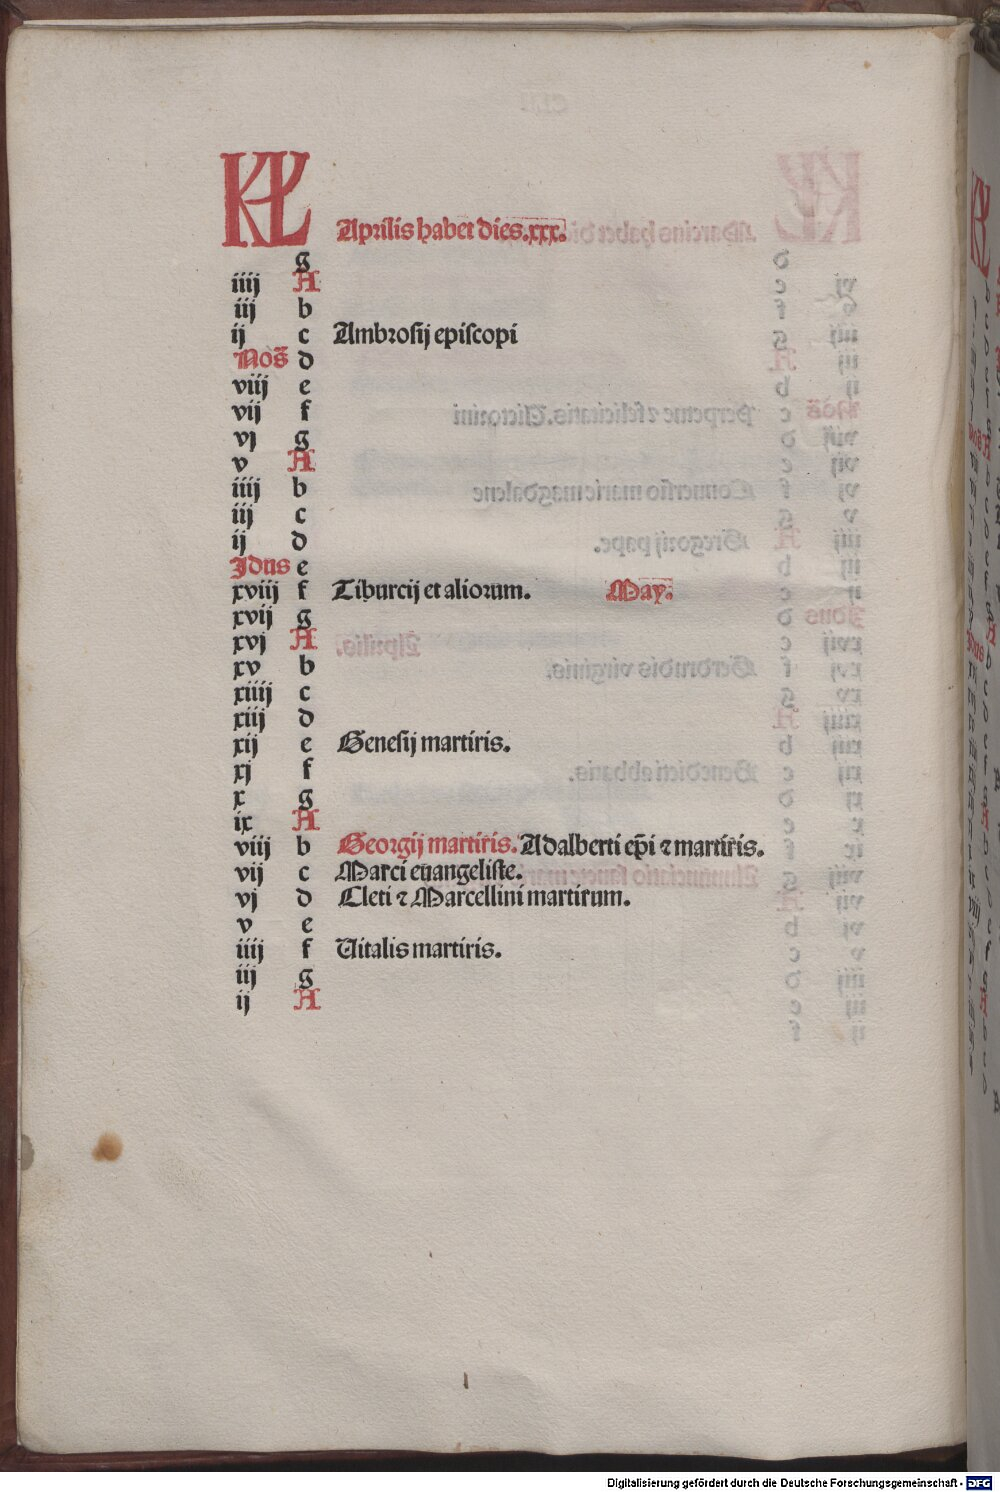 KL Aprilis habet dies.xxx.
g
iiij A
iij b
ij c Ambrosij episcopi
Nos̄ d
viij e
vij f
vj g
v A
iiij b
iij c
ij d
Jdus e
xviij f Tiburcij et aliorum. May.
xvij g
xvj A
xv b
xiiij c
xiij d
xij e Genesij martiris.
xj f
x g
ix A
viij b Georgij martiris. Adalberti ep̄i ⁊ martiris.
vij c Marci euangeliste.
vj d Cleti ⁊ Marcellini martirum.
v e
iiij f Uitalis martiris.
iij g
ij A
Digitalisierung gefördert durch die Deutsche Forschungsgemeinschaft - DFG